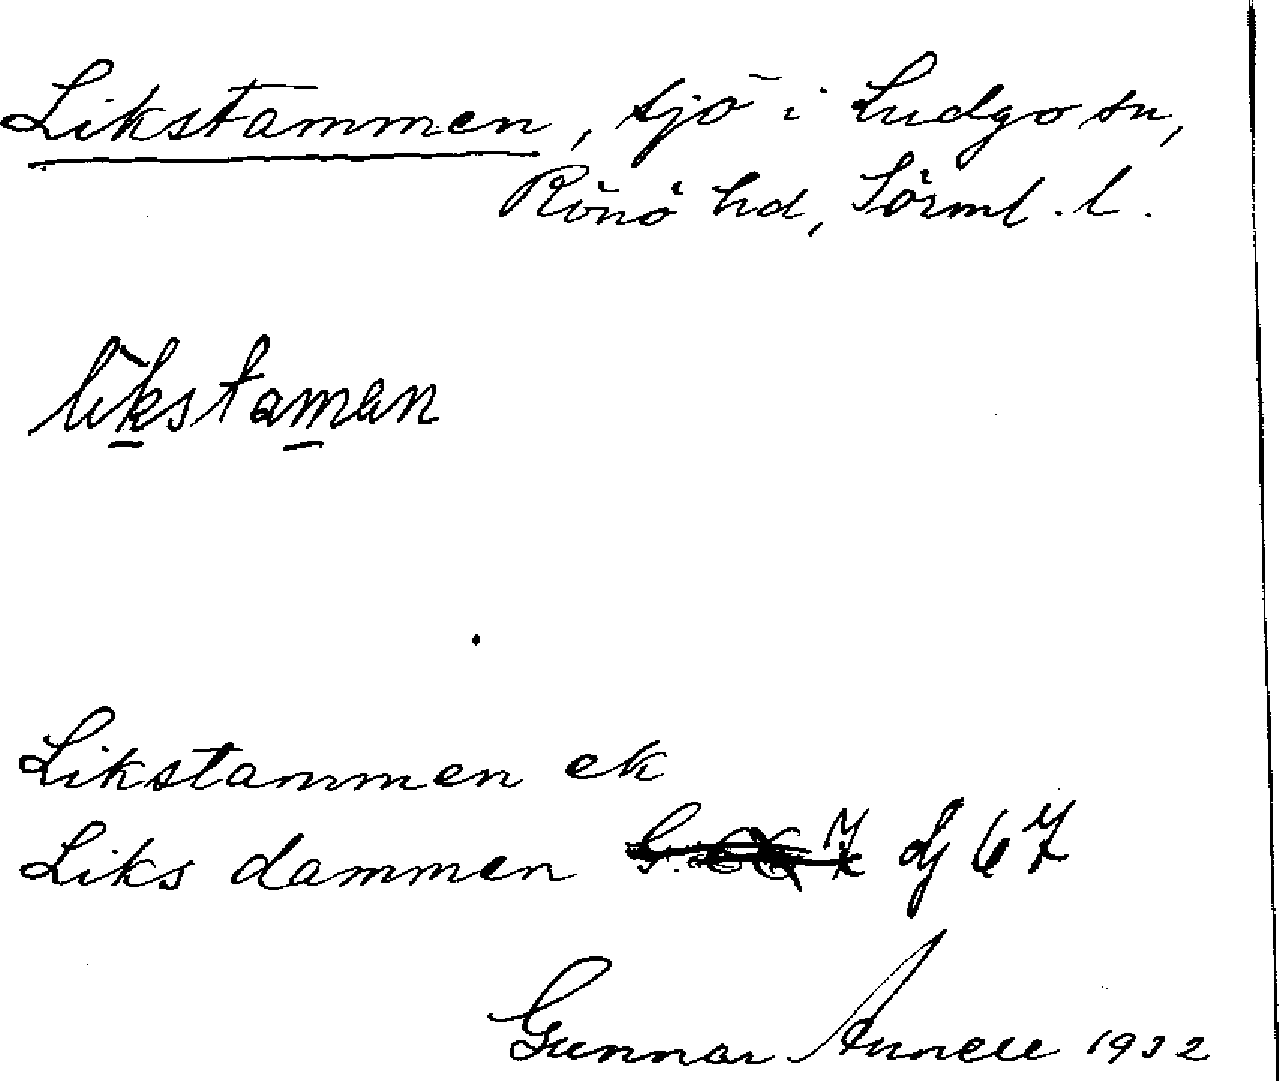 Likstammen, sjö i Ludgo sn,
Rönö hd, Sörml. l.
likstaman
Likstammen ek
Liks dammen dj 67
Gunnar Annell 1932